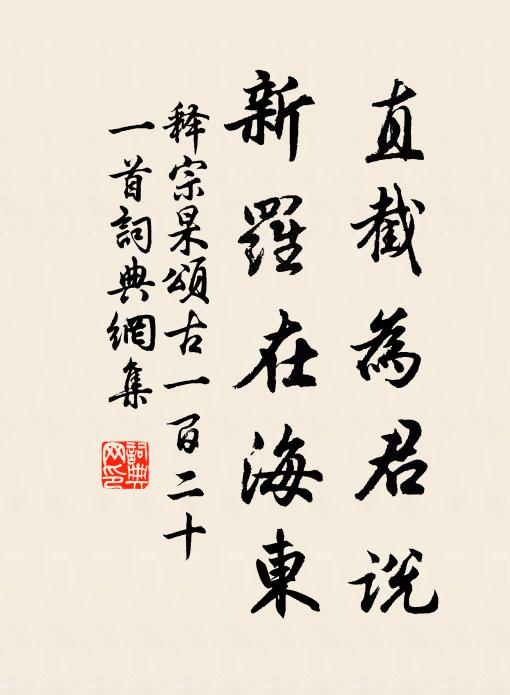 直截為君説
新羅在海東
释宗杲頌古一百二十
一首詞典網集
詞典網印